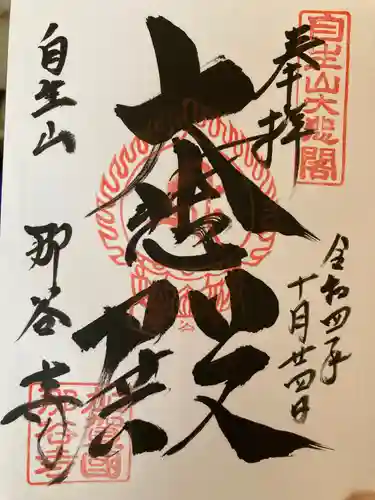 奉拝
自生山大悲閣
令和四年
十月廿四日
大悲殿
自生山
那谷寺
加賀国
那谷寺